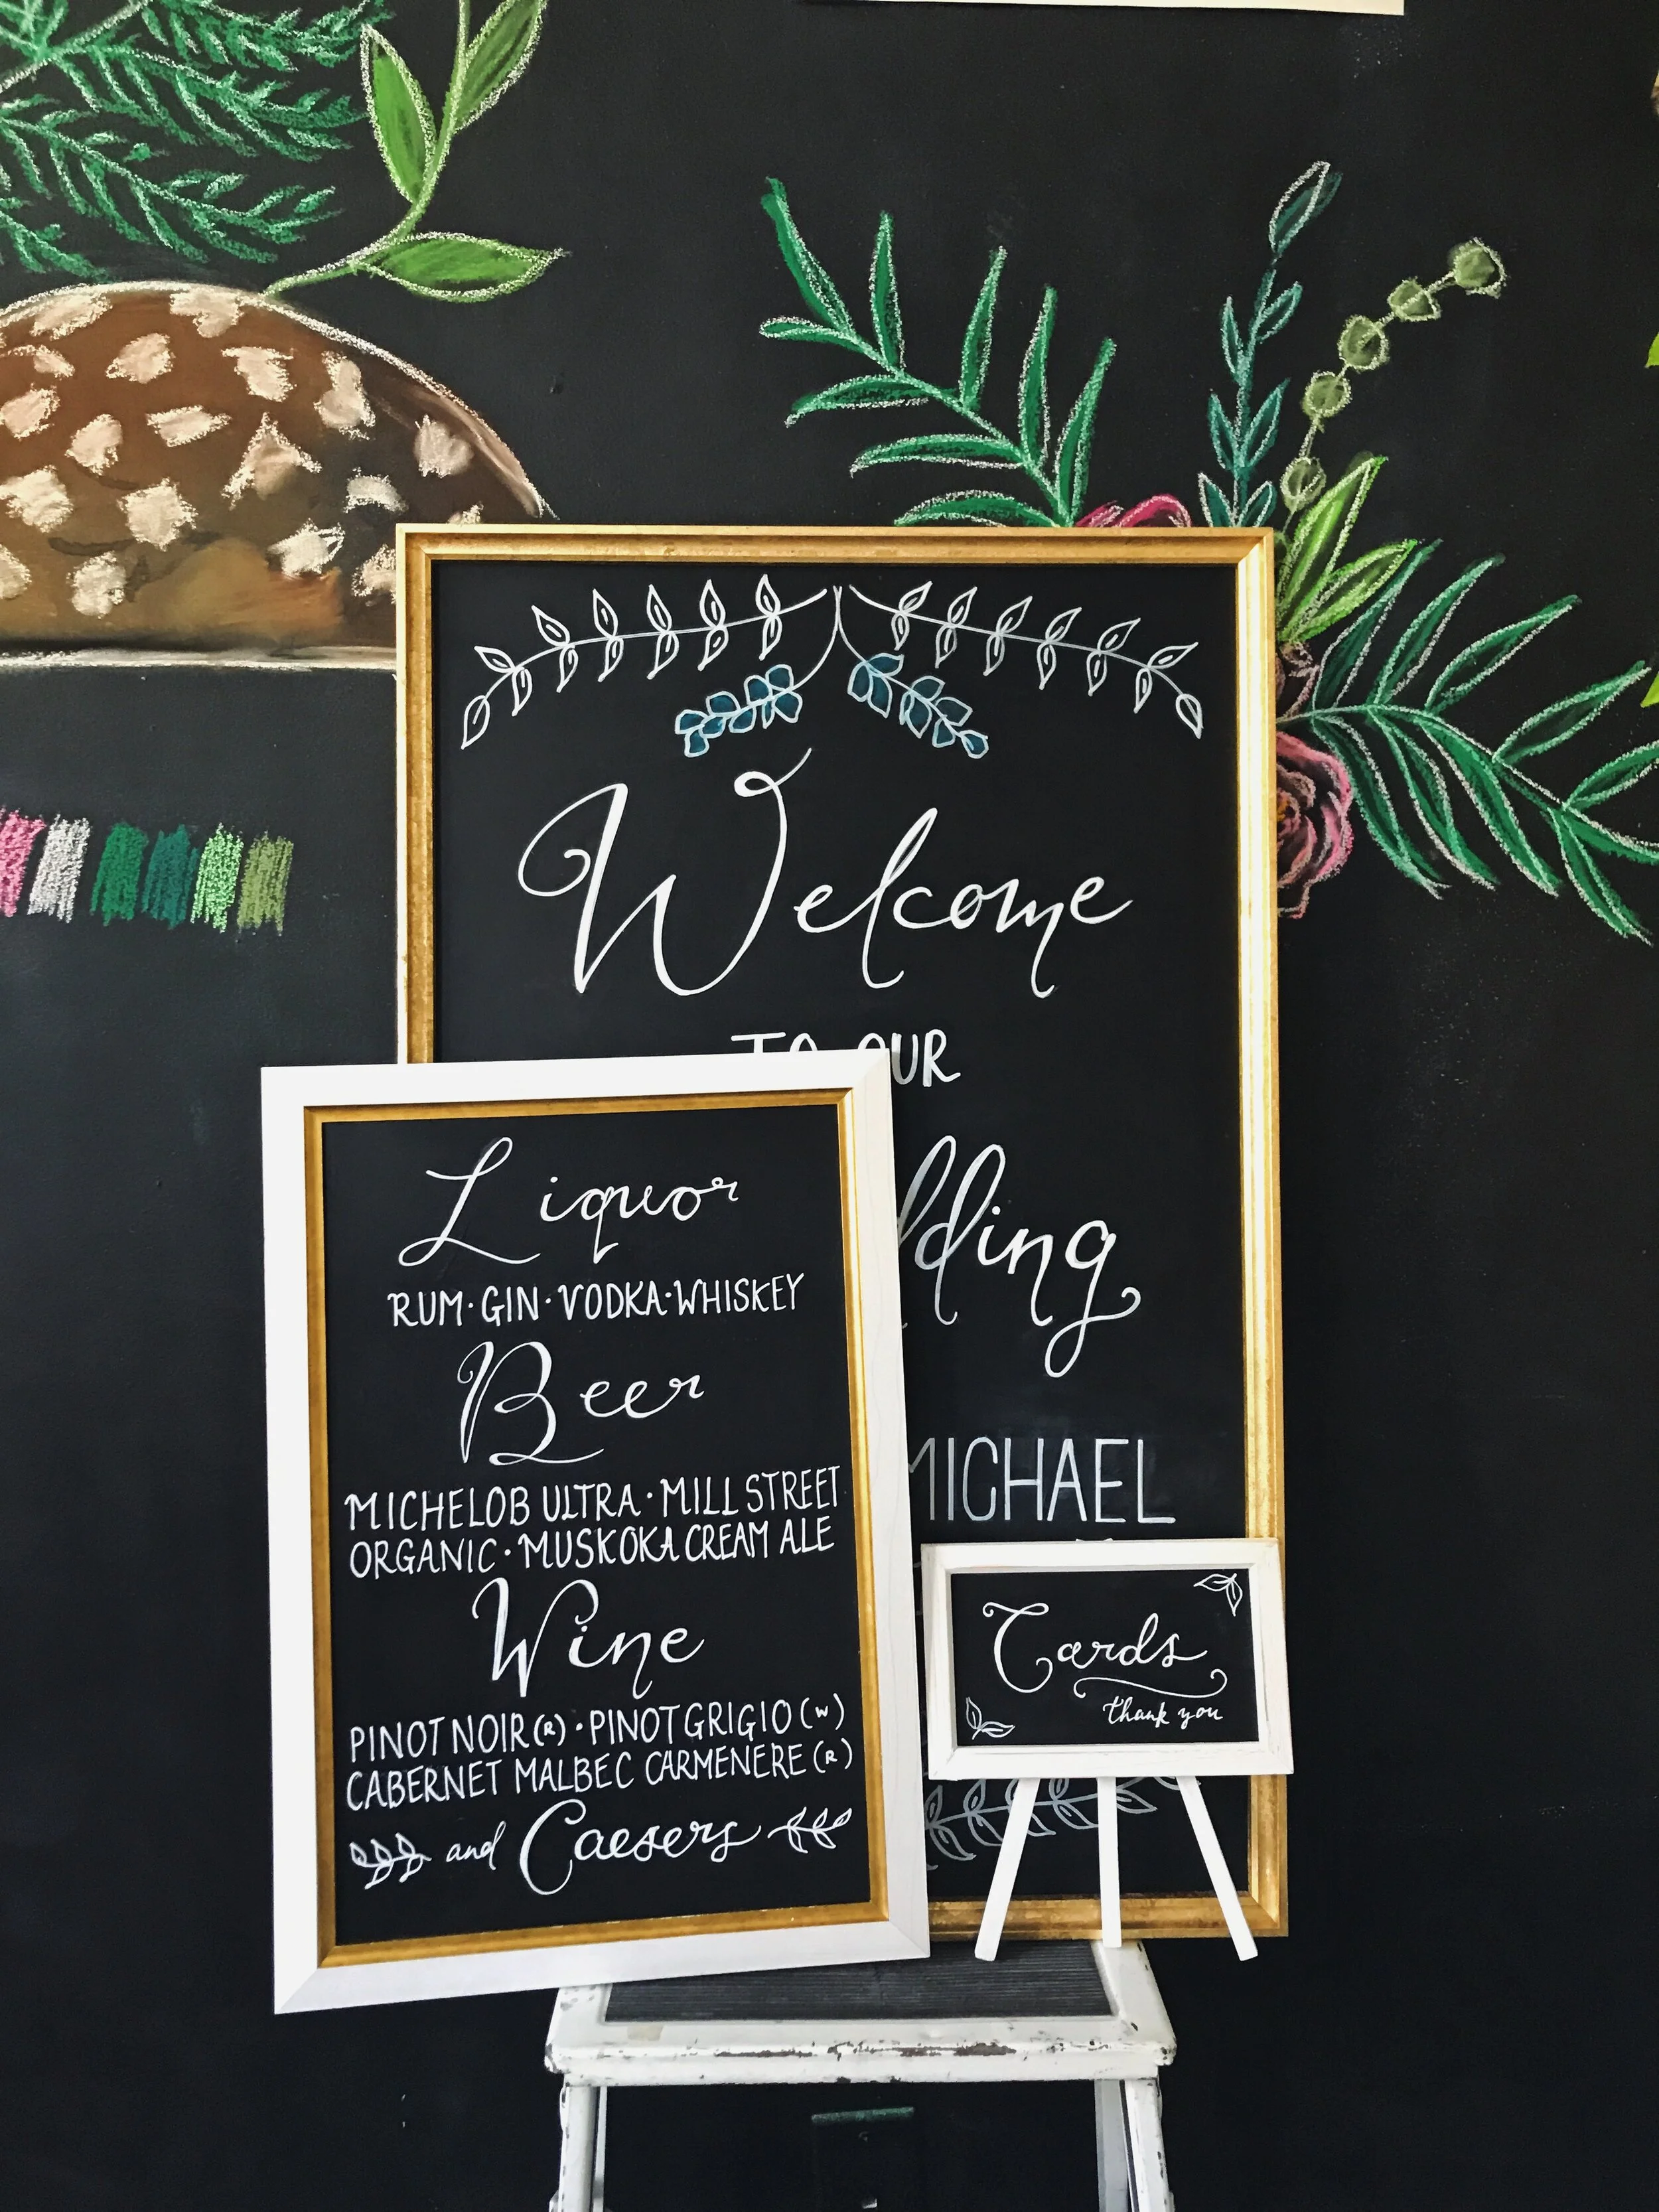 Welcome
TO OUR
MICHAEL
Liquor
RUM · GIN · VODKA · WHISKEY
Beer
MICHELOB ULTRA · MILL STREET
ORGANIC · MUSKOKA CREAM ALE
Wine
PINOT NOIR (R) · PINOT GRIGIO (W)
CABERNET MALBEC CARMENERE (R)
and Caesers
Cards
thank you